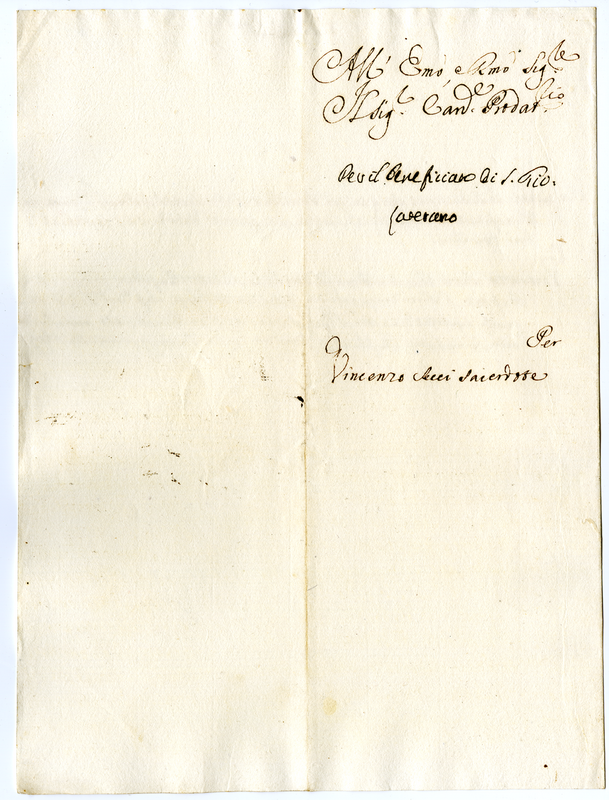 All' Emo, e Rmo Sig.re
Il Sig.r Card.e Prodat.rio
Per il Beneficiato di S. Gio.
Laterano
Per
Vincenzo Ricci Sacerdote